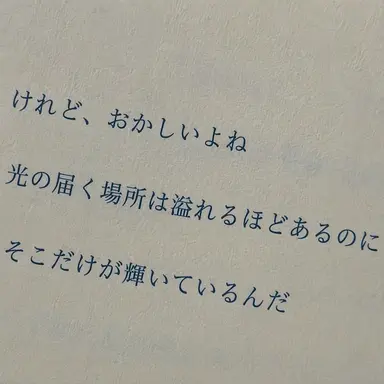 けれど、おかしいよね
光の届く場所は溢れるほどあるのに
そこだけが輝いているんだ